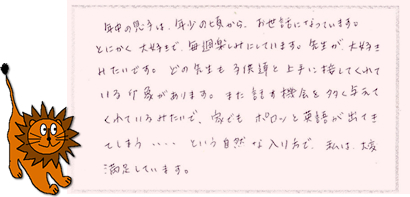 年中の息子は、年少の頃から、お世話になっています。
とにかく大好きで、毎週楽しみにしています。先生が、大好き
みたいです。どの先生も子供達と上手に接してくれて
いる印象があります。また話す機会を多く与えて
くれているみたいで、家でも ポロッと英語が出てき
てしまう・・・・という自然な入り方で、私は、大変
満足しています。